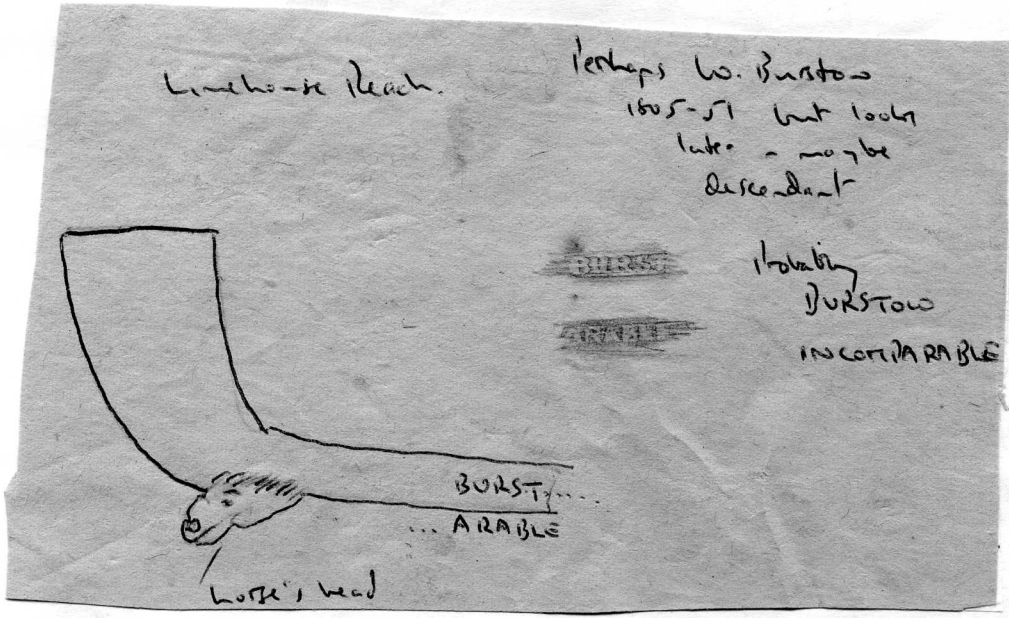 Limehouse Reach.
Perhaps W. Burstow
1805-51 but looks
later - maybe
descendant
BURST
ARABLE
Probably
BURSTOW
INCOMPARABLE
BURST.....
... ARABLE
horse's head